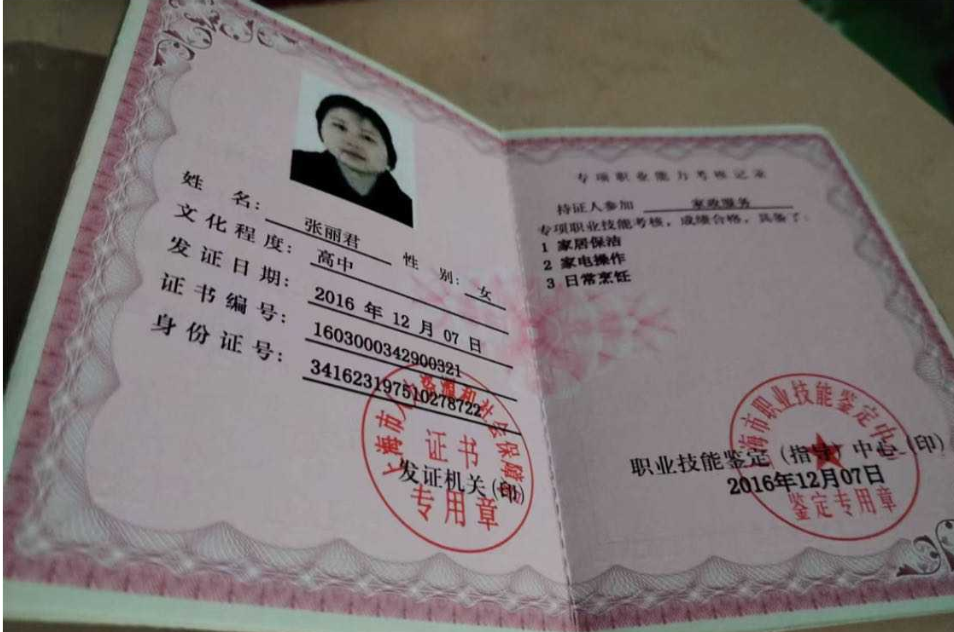 姓 名: 张丽君 性 别: 女
文化程度: 高中
发证日期: 2016 年 12 月 07 日
证书编号: 1603000342900321
身份证号: 341623197510278722
上海市人力资源和社会保障局
证书
发证机关(印)
专用章
专项职业能力考核记录
持证人参加 家政服务
专项职业技能考核，成绩合格，具备了:
1 家居保洁
2 家电操作
3 日常烹饪
海市职业技能鉴定中心
职业技能鉴定(指导)中心(印)
2016年12月07日
鉴定专用章